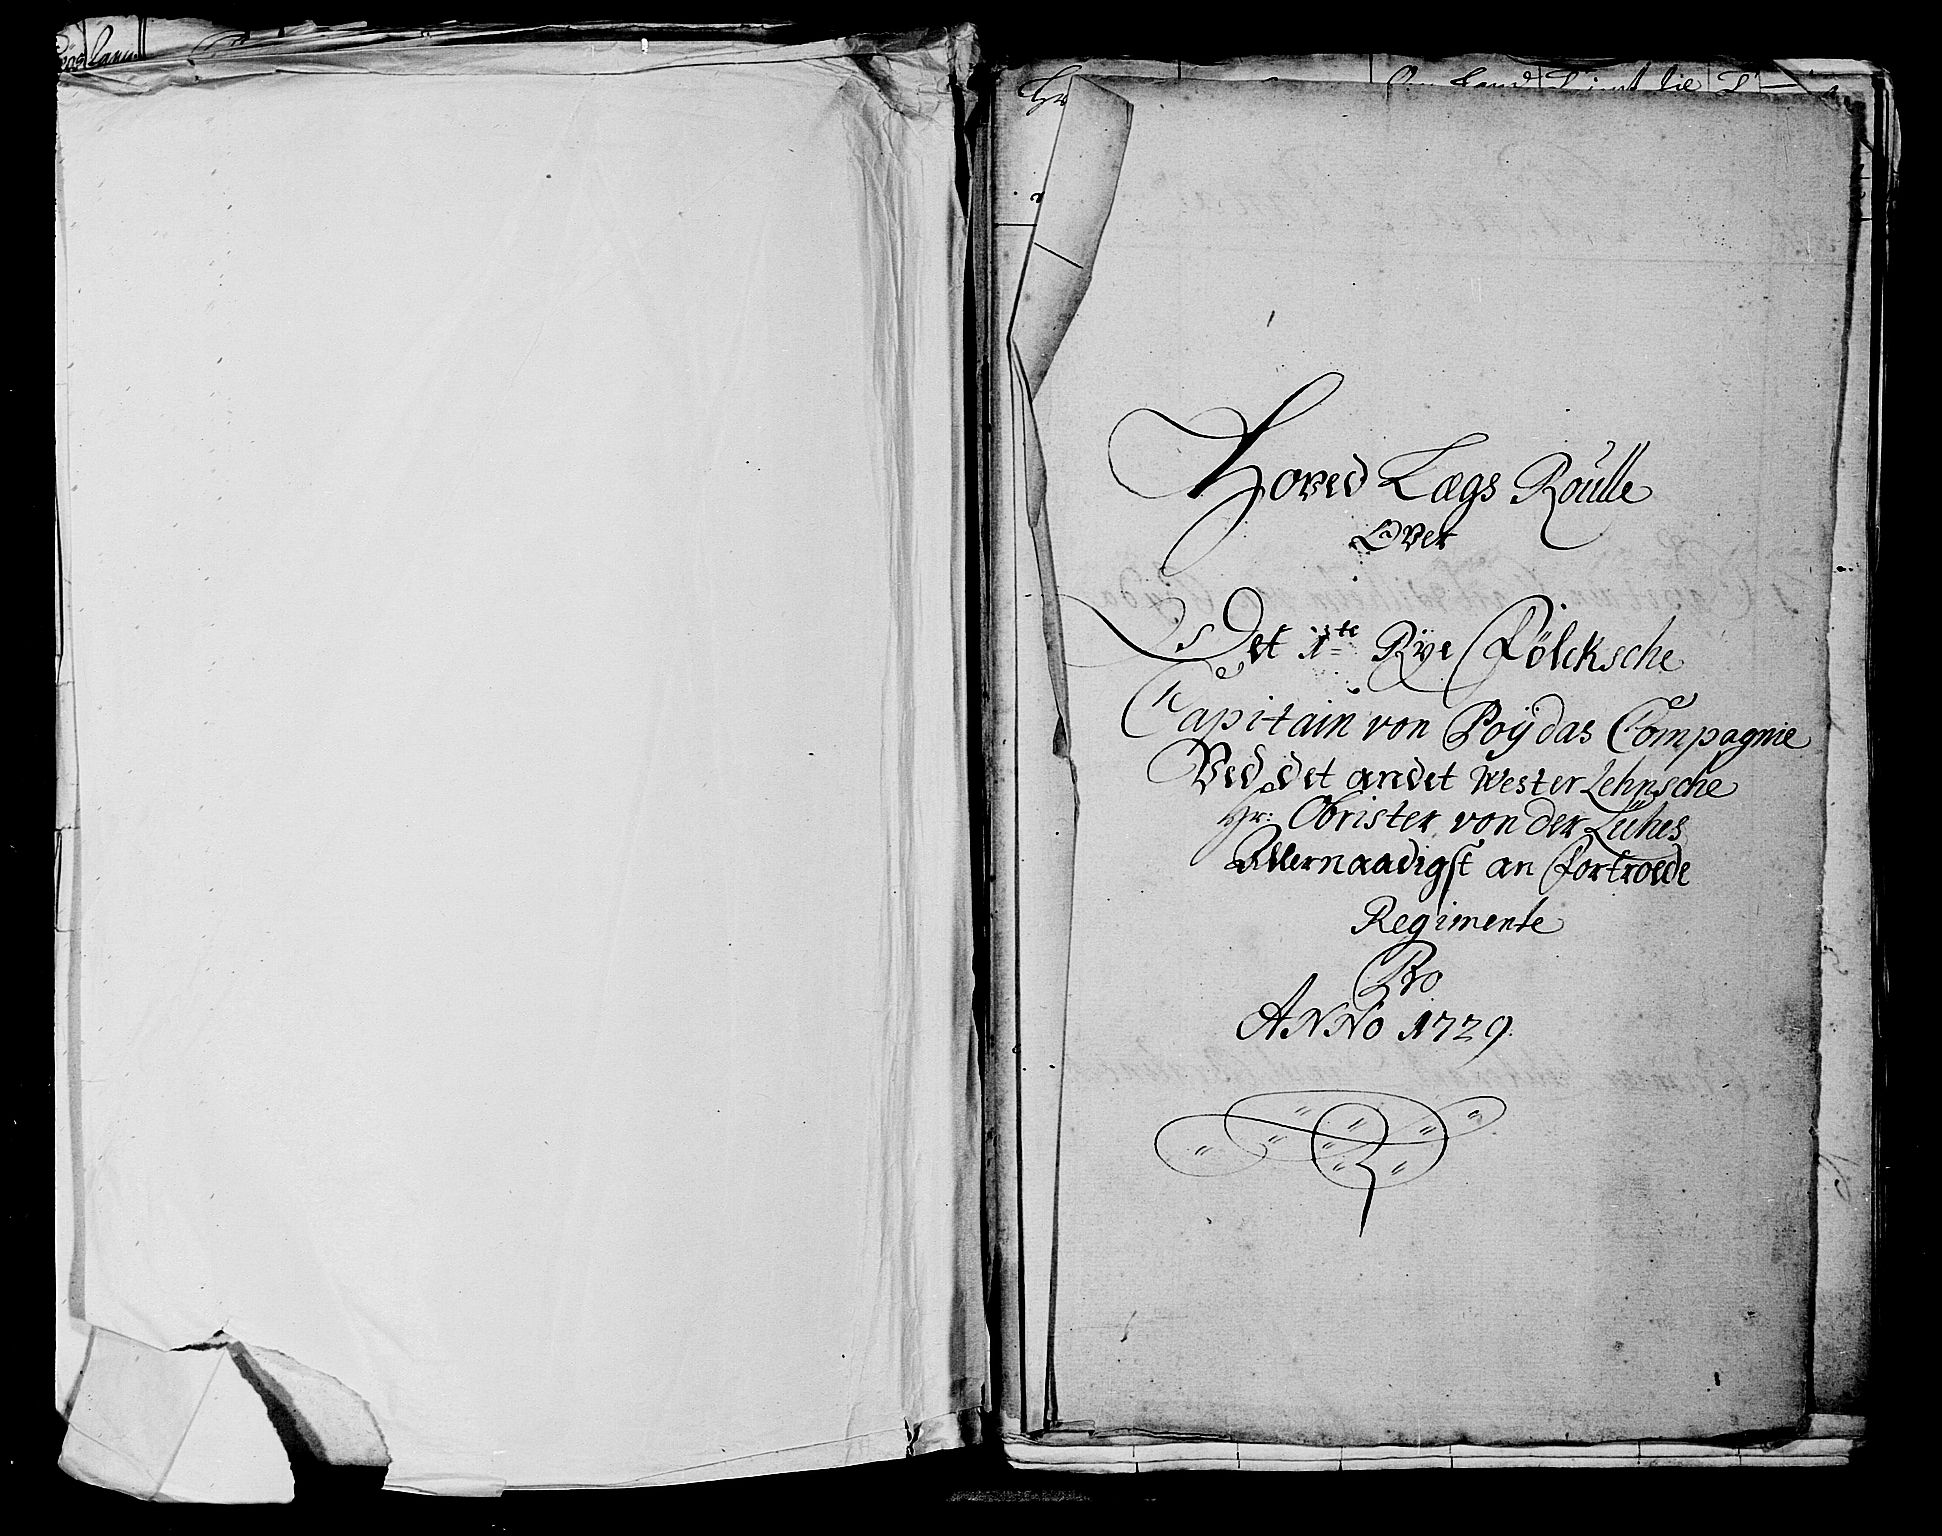 Hoved Lægs Roulle
Over
Det 1te Rye Fölcksche
Capitain von Poÿdas Compagnie
Ved det andet Wester Lehnsche
Hr: Obrister von der Lühes
Allernaadigst an Fortroede
Regimente
Pro
ANNo 1729